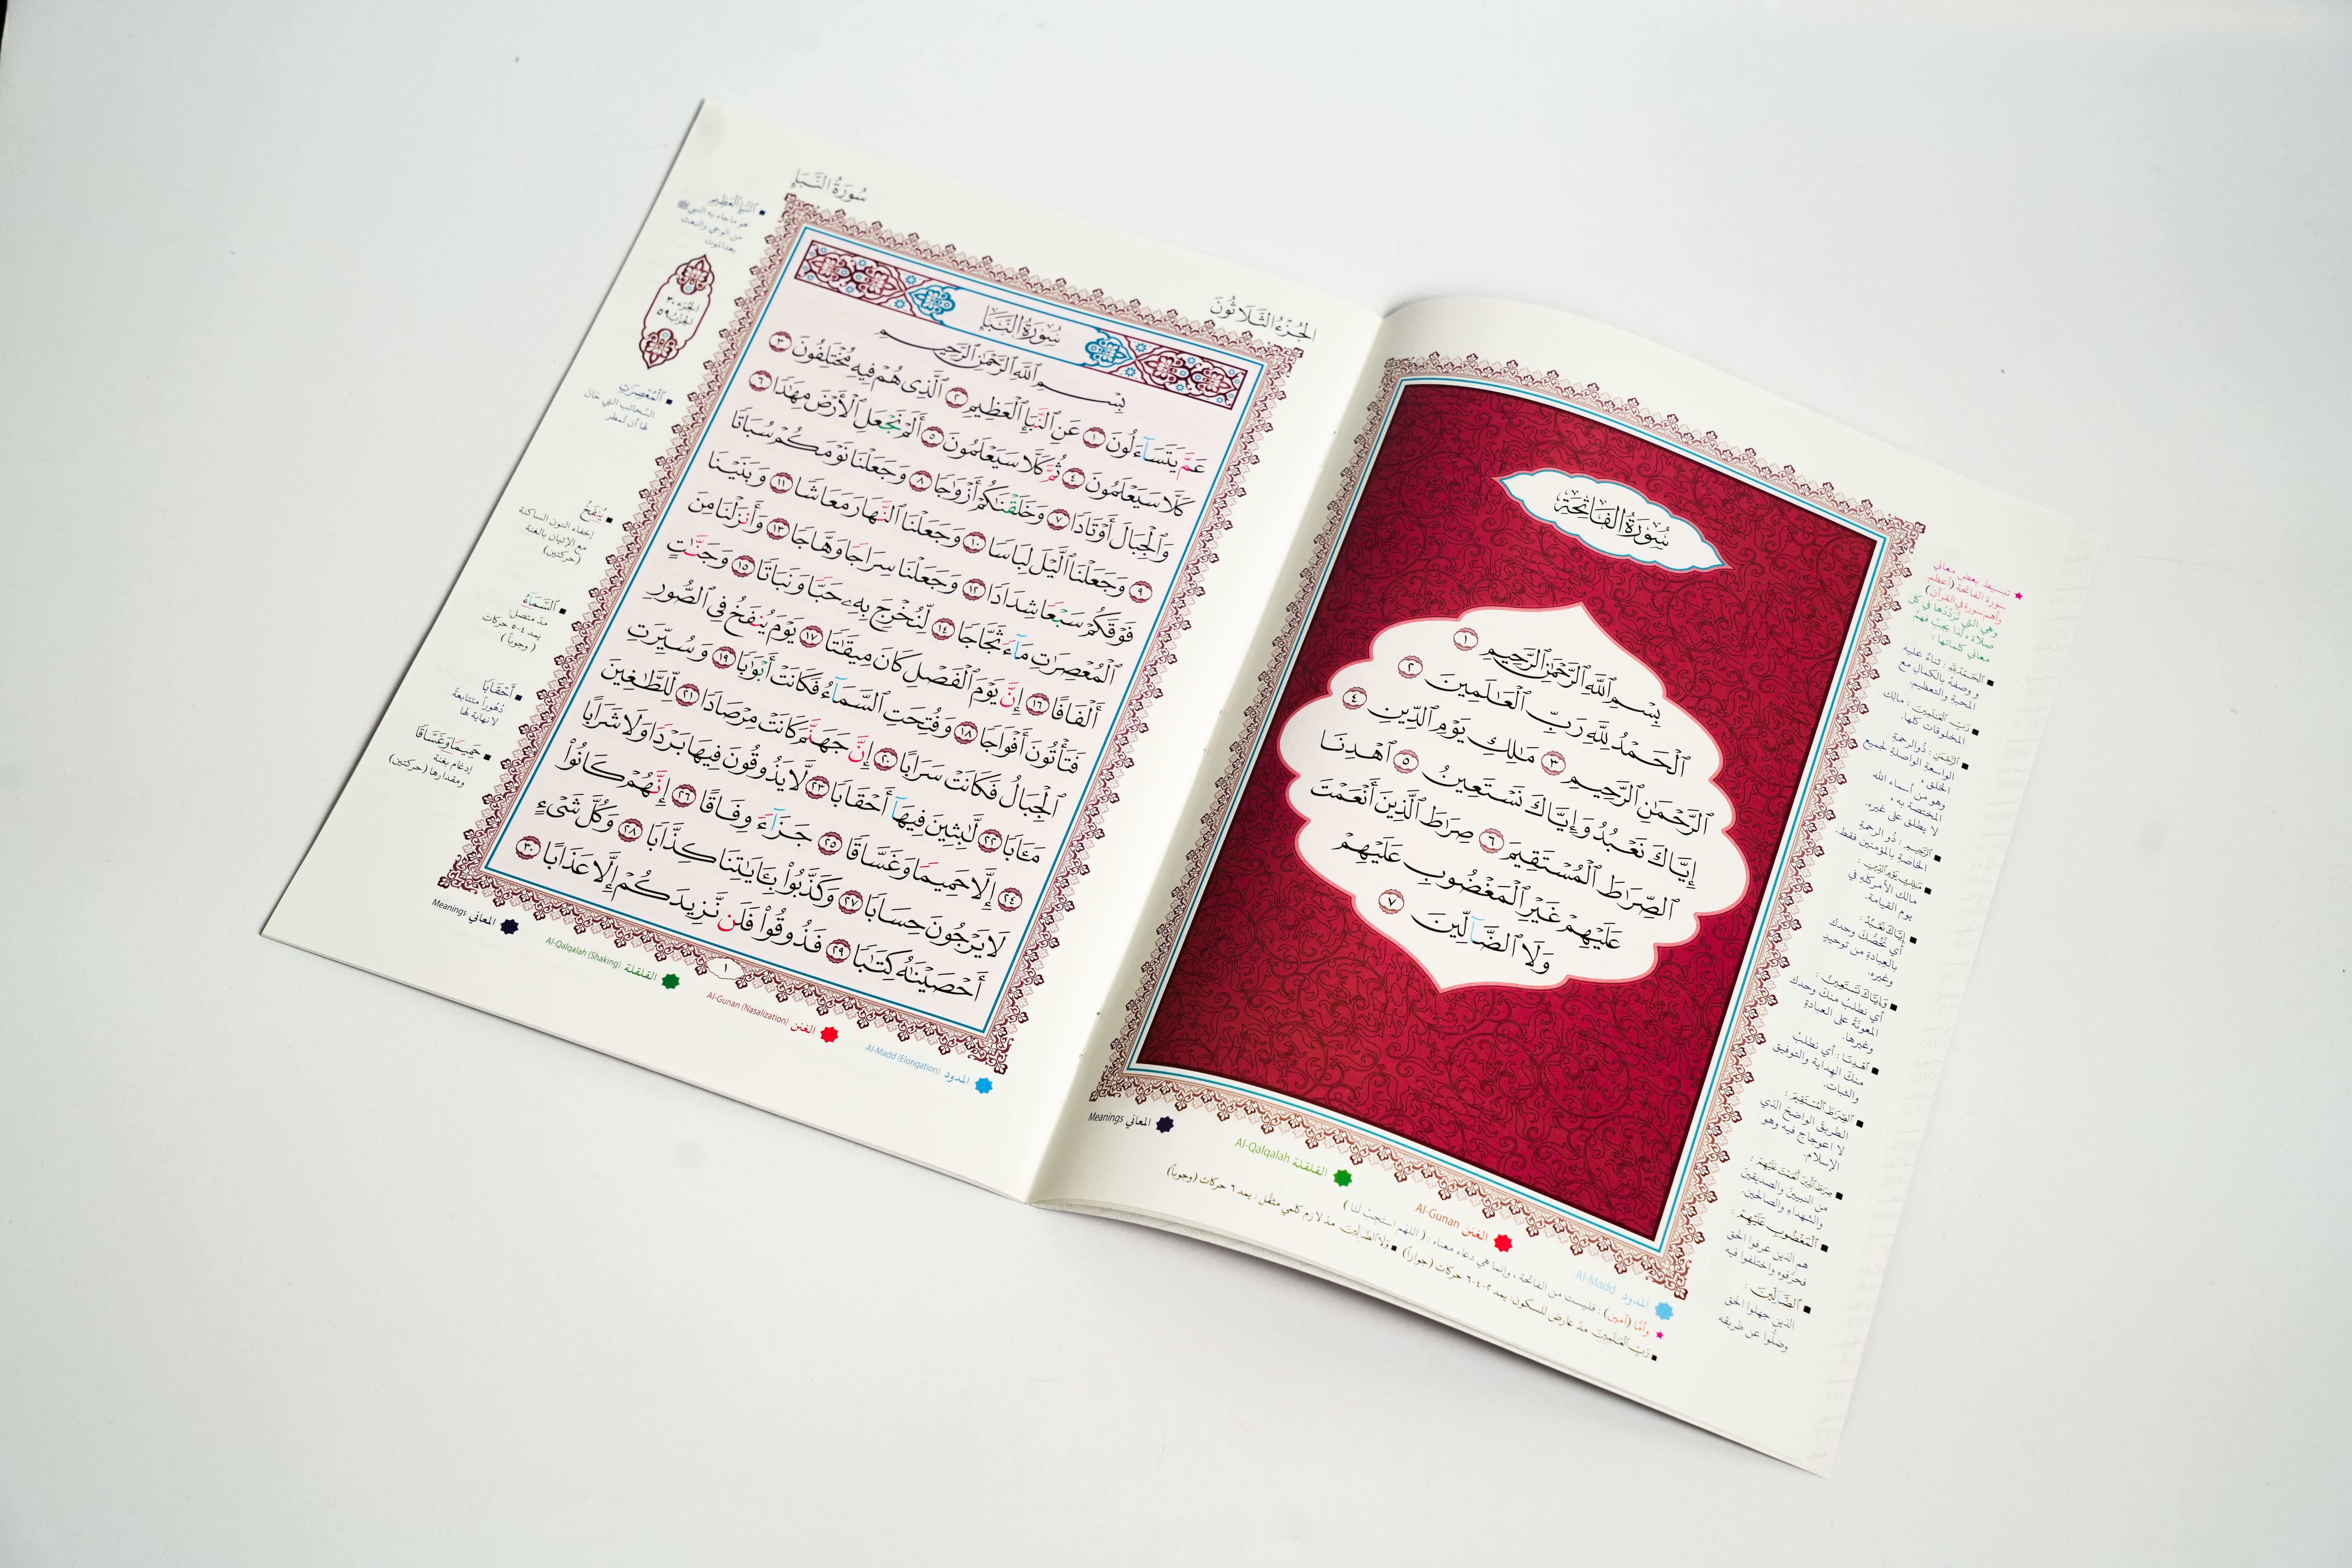 سُورَةُ الفَاتِحَة
بِسْمِ ٱللَّهِ ٱلرَّحْمَٰنِ ٱلرَّحِيمِ ١
ٱلْحَمْدُ لِلَّهِ رَبِّ ٱلْعَٰلَمِينَ ٢
ٱلرَّحْمَٰنِ ٱلرَّحِيمِ ٣ مَٰلِكِ يَوْمِ ٱلدِّينِ ٤
إِيَّاكَ نَعْبُدُ وَإِيَّاكَ نَسْتَعِينُ ٥ ٱهْدِنَا
ٱلصِّرَٰطَ ٱلْمُسْتَقِيمَ ٦ صِرَٰطَ ٱلَّذِينَ أَنْعَمْتَ
عَلَيْهِمْ غَيْرِ ٱلْمَغْضُوبِ عَلَيْهِمْ
وَلَا ٱلضَّآلِّينَ ٧
تبسيط بعض معاني
سورة الفاتحة (أعظم
وأهم سورة في القرآن)
وهي التي نُردِّدُها في كل
صلاة، لذا يجبُ فهمُ
معاني كلماتها:
ٱلْحَمْدُ لِلَّهِ: ثناءٌ عليه
ووصفهُ بالكمال مع
المحبةِ والتعظيم.
رَبِّ ٱلْعَٰلَمِينَ: مالك
المخلوقات كلها.
ٱلرَّحْمَٰنِ: ذُو الرحمةِ
الواسعة الواصلة لجميع
الخلق،
وهو من أسماء الله
المختصة به،
لا يطلق على غيره.
ٱلرَّحِيمِ: ذُو الرحمةِ
الخاصة بالمؤمنين فقط.
مَٰلِكِ يَوْمِ ٱلدِّينِ:
مالك الأمر كله في
يوم القيامة.
إِيَّاكَ نَعْبُدُ:
أي نخُصُّكَ وحدك
بالعبادةِ من توحيدٍ
وغيره.
وَإِيَّاكَ نَسْتَعِينُ:
أي نطلبُ منك وحدك
المعونة على العبادة
وغيرها.
ٱهْدِنَا: أي نطلبُ
منك الهداية والتوفيق
والثبات.
ٱلصِّرَٰطَ ٱلْمُسْتَقِيمَ:
الطريق الواضحَ الذي
لا اعوجاج فيه وهو
الإسلام.
صِرَٰطَ ٱلَّذِينَ أَنْعَمْتَ عَلَيْهِمْ:
من النبيين والصديقين
والشهداء والصالحين.
ٱلْمَغْضُوبِ عَلَيْهِمْ:
هم الذين عرفوا الحق
فحرَّفوه واختلفوا فيه
ٱلضَّآلِّينَ:
الذين جهلوا الحق
وضلُّوا عن طريقه
المدود Al-Madd
الغنن Al-Gunan
القلقلة Al-Qalqalah
المعاني Meanings
وأمَّا (آمين): فليست من الفاتحة، وإنما هي دعاء معناه: (اللهم استَجِبْ لَنا)
رَبِّ ٱلْعَٰلَمِينَ مدّ عارض للسكون، يمد ٢-٤-٦ حركات (جوازاً) ▪ وَلَا ٱلضَّآلِّينَ مدّ لازم كلمي مثقَّل: يمد ٦ حركات (وجوباً)
الجُزْءُ الثَّلَاثُونَ
سُورَةُ النَّبَإِ
سُورَةُ النَّبَإِ
بِسْمِ ٱللَّهِ ٱلرَّحْمَٰنِ ٱلرَّحِيمِ
عَمَّ يَتَسَآءَلُونَ ١ عَنِ ٱلنَّبَإِ ٱلْعَظِيمِ ٢ ٱلَّذِى هُمْ فِيهِ مُخْتَلِفُونَ ٣
كَلَّا سَيَعْلَمُونَ ٤ ثُمَّ كَلَّا سَيَعْلَمُونَ ٥ أَلَمْ نَجْعَلِ ٱلْأَرْضَ مِهَٰدًا ٦
وَٱلْجِبَالَ أَوْتَادًا ٧ وَخَلَقْنَٰكُمْ أَزْوَٰجًا ٨ وَجَعَلْنَا نَوْمَكُمْ سُبَاتًا
٩ وَجَعَلْنَا ٱلَّيْلَ لِبَاسًا ١٠ وَجَعَلْنَا ٱلنَّهَارَ مَعَاشًا ١١ وَبَنَيْنَا
فَوْقَكُمْ سَبْعًا شِدَادًا ١٢ وَجَعَلْنَا سِرَاجًا وَهَّاجًا ١٣ وَأَنزَلْنَا مِنَ
ٱلْمُعْصِرَٰتِ مَآءً ثَجَّاجًا ١٤ لِّنُخْرِجَ بِهِۦ حَبًّا وَنَبَاتًا ١٥ وَجَنَّٰتٍ
أَلْفَافًا ١٦ إِنَّ يَوْمَ ٱلْفَصْلِ كَانَ مِيقَٰتًا ١٧ يَوْمَ يُنفَخُ فِى ٱلصُّورِ
فَتَأْتُونَ أَفْوَاجًا ١٨ وَفُتِحَتِ ٱلسَّمَآءُ فَكَانَتْ أَبْوَٰبًا ١٩ وَسُيِّرَتِ
ٱلْجِبَالُ فَكَانَتْ سَرَابًا ٢٠ إِنَّ جَهَنَّمَ كَانَتْ مِرْصَادًا ٢١ لِّلطَّٰغِينَ
مَـَٔابًا ٢٢ لَّٰبِثِينَ فِيهَآ أَحْقَابًا ٢٣ لَّا يَذُوقُونَ فِيهَا بَرْدًا وَلَا شَرَابًا
٢٤ إِلَّا حَمِيمًا وَغَسَّاقًا ٢٥ جَزَآءً وِفَاقًا ٢٦ إِنَّهُمْ كَانُوا۟
لَا يَرْجُونَ حِسَابًا ٢٧ وَكَذَّبُوا۟ بِـَٔايَٰتِنَا كِذَّابًا ٢٨ وَكُلَّ شَىْءٍ
أَحْصَيْنَٰهُ كِتَٰبًا ٢٩ فَذُوقُوا۟ فَلَن نَّزِيدَكُمْ إِلَّا عَذَابًا ٣٠
١
ٱلنَّبَإِ ٱلْعَظِيمِ
هو ما جاء به النبي ﷺ
من الوحي والبعث
بعد الموت
الجزء ٣٠
الحزب ٥٩
ٱلْمُعْصِرَٰتِ
السَّحائب التي حَان
لها أن تُمطر
يُنفَخُ
إخفاء النون الساكنة
مع الإتيان بالغنة
(حركتين)
ٱلسَّمَآءُ
مدّ متصل
يمد ٤-٥ حركات
(وجوباً)
أَحْقَابًا
دُهُوراً متتابعةً
لا نهاية لها
حَمِيمًا وَغَسَّاقًا
إدغام بغنة
ومقدارها (حركتين)
المدود Al-Madd (Elongation)
الغنن Al-Gunan (Nasalization)
القلقلة Al-Qalqalah (Shaking)
المعاني Meanings